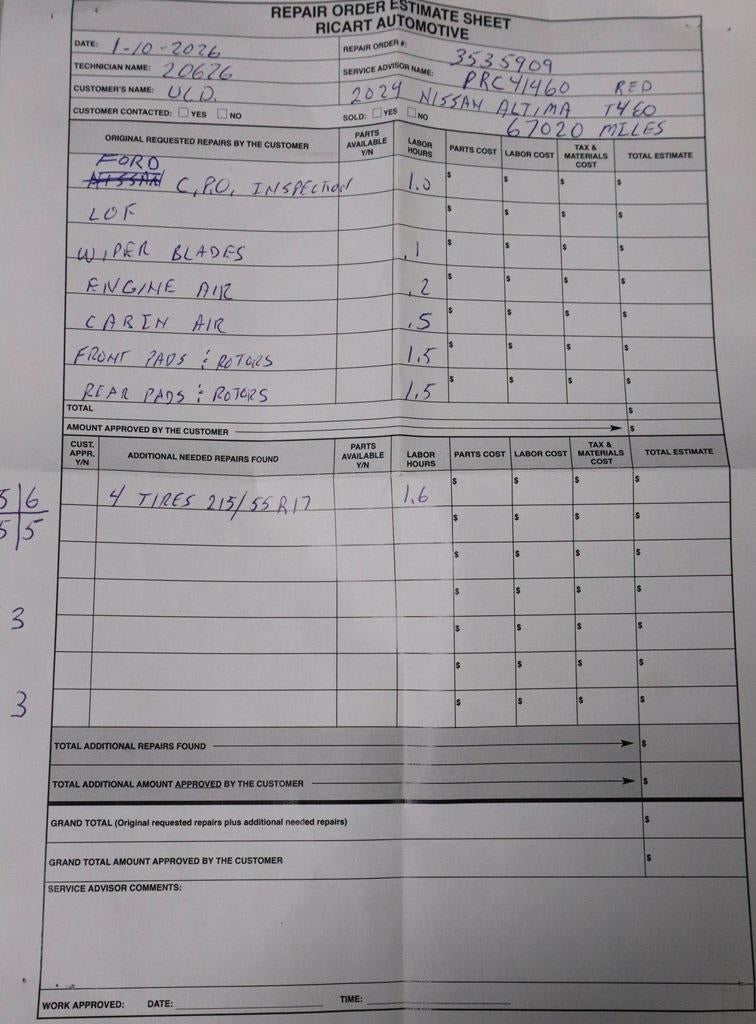 REPAIR ORDER ESTIMATE SHEET
RICART AUTOMOTIVE
DATE: 1-10-2026 REPAIR ORDER #: 3535909
TECHNICIAN NAME: 20626 SERVICE ADVISOR NAME: PRC41460 RED
CUSTOMER'S NAME: ULD. 2024 NISSAN ALTIMA T460
CUSTOMER CONTACTED: YES NO SOLD: YES NO 67020 MILES
ORIGINAL REQUESTED REPAIRS BY THE CUSTOMER PARTS AVAILABLE Y/N LABOR HOURS PARTS COST LABOR COST TAX & MATERIALS COST TOTAL ESTIMATE
FORD
NISSAN C.P.O. INSPECTION 1.0 $ $ $ $
LOF $ $ $ $
WIPER BLADES .1 $ $ $ $
ENGINE AIR .2 $ $ $ $
CABIN AIR .5 $ $ $ $
FRONT PADS & ROTORS 1.5 $ $ $ $
REAR PADS & ROTORS 1.5 $ $ $ $
TOTAL $
AMOUNT APPROVED BY THE CUSTOMER $
CUST. APPR. Y/N ADDITIONAL NEEDED REPAIRS FOUND PARTS AVAILABLE Y/N LABOR HOURS PARTS COST LABOR COST TAX & MATERIALS COST TOTAL ESTIMATE
5 6 4 TIRES 215/55R17 1.6 $ $ $ $
5 5 $ $ $ $
$ $ $ $
$ $ $ $
3 $ $ $ $
$ $ $ $
3 $ $ $ $
TOTAL ADDITIONAL REPAIRS FOUND $
TOTAL ADDITIONAL AMOUNT APPROVED BY THE CUSTOMER $
GRAND TOTAL (Original requested repairs plus additional needed repairs) $
GRAND TOTAL AMOUNT APPROVED BY THE CUSTOMER $
SERVICE ADVISOR COMMENTS:
WORK APPROVED: DATE: TIME: